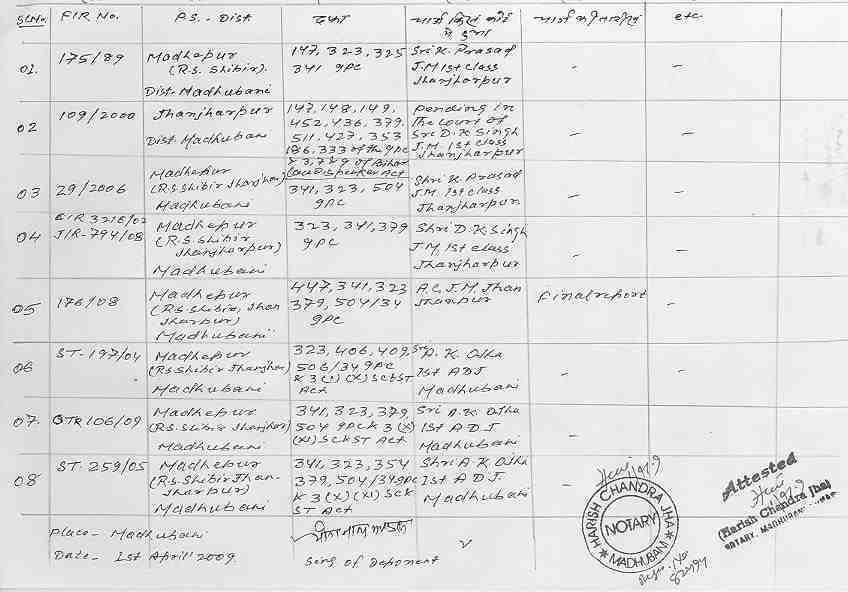 Sl.No. FIR No. P.S. - Dist दफा etc.
01. 175/89 Madhepur (R.S. Shibir). Dist. Madhubani 147, 323, 325 341 IPC Sri K. Prasad J.M. 1st Class Jhanjharpur - -
02 109/2000 Jhanjharpur Dist. Madhubani 147, 148, 149, 452, 436, 379, 511, 427, 353 186, 333 of the IPC & 3, 7 & 9 of Bihar Pending in the court of Sri D. K Singh J.M. 1st Class Jhanjharpur - -
03 29/2006 Madhepur (R.S Shibir Jhanjhar) Madhubani 341, 323, 504 IPC Shri K. Prasad J.M. 1st Class Jhanjharpur - -
04 3216/02 794/08 Madhepur (R.S. Shibir Jhanjharpur) Madhubani 323, 341, 379 IPC Shri D. K Singh J.M. 1st class Jhanjharpur - -
05 176/08 Madhepur (R.S. Shibir, Jhan Jharpur) Madhubani 447, 341, 323 379, 504/34 IPC A.C.J.M. Jhan Final report -
06 ST-197/04 Madhepur (R.S Shibir Jhanjhar) Madhubani 323, 406, 409, 506/34 IPC & 3(1)(X) SC & ST Act Sri A. K. Ojha 1st ADJ Madhubani - -
07. 106/09 Madhepur (R.S. Shibir, Jhanjhar) Madhubani 341, 323, 379, 504 IPC & 3(X) (XI) SC & ST Act Sri A.K Ojha 1st A D J Madhubani -
08 ST. 259/05 Madhepur (R.S. Shibir Jhan- Jharpur) Madhubani 341, 323, 354 379, 504/34 IPC & 3(X)(XI) SC & ST Act Shri A K Ojha 1st A D J. Madhubani -
Place - Madhubani
Date - 1st April' 2009
Sing of Deponent
HARISH CHANDRA JHA
NOTARY
MADHUBANI
Attested
(Harish Chandra Jha)
NOTARY, MADHUBANI